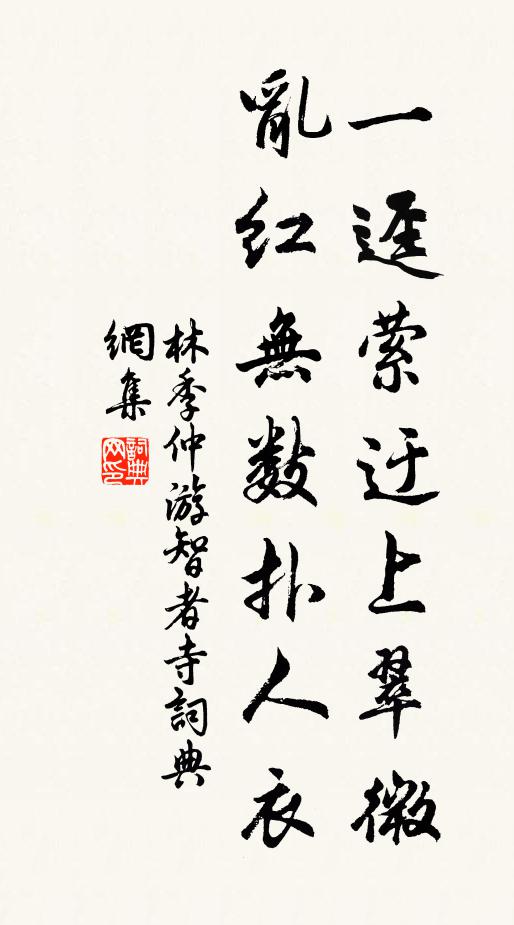 一逕縈迂上翠微
亂紅無数扑人衣
林季仲游智者寺詞典
網集
詞典
网印